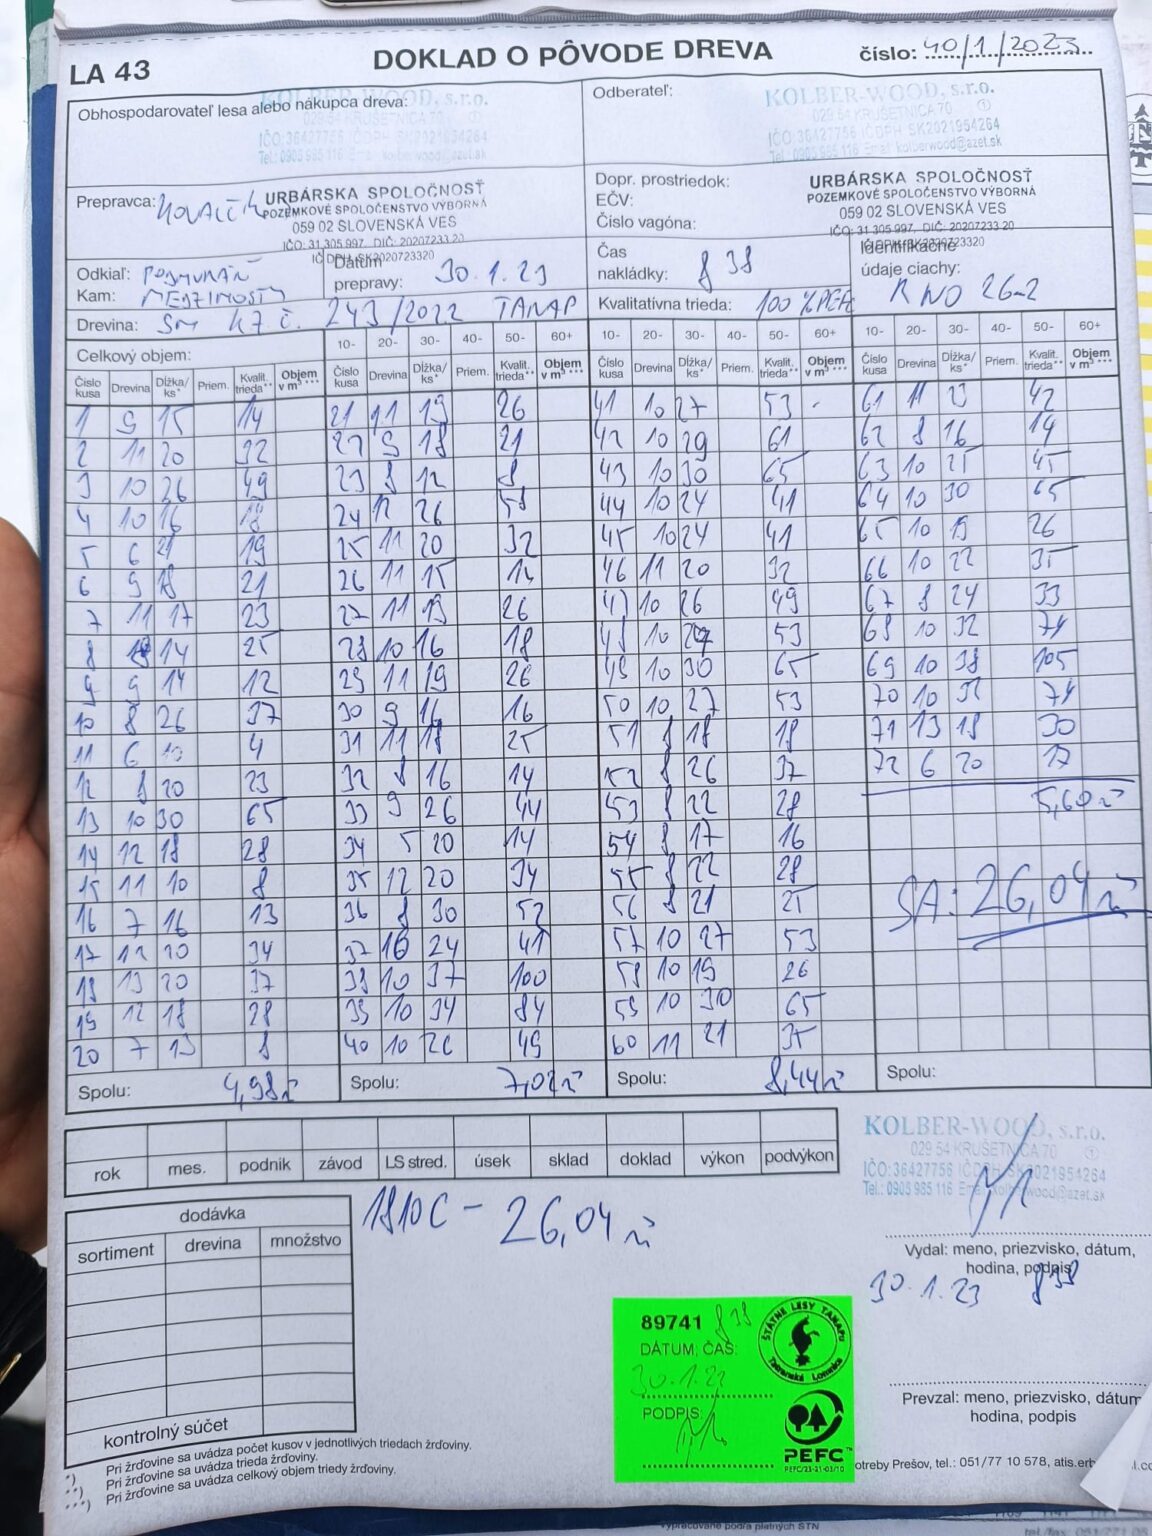 LA 43
DOKLAD O PÔVODE DREVA
číslo: 40/1/2023
Obhospodarovateľ lesa alebo nákupca dreva:
KOLBER-WOOD, s.r.o.
029 54 KRUŠETNICA 70
IČO:36427756 IČDPH SK2021954264
Tel.: 0905 985 116 Email kolberwood@azet.sk
Odberateľ:
KOLBER-WOOD, s.r.o.
029 54 KRUŠETNICA 70 ①
IČO:36427756 IČDPH SK2021954264
Tel.: 0905 985 116 Email kolberwood@azet.sk
Prepravca:
URBÁRSKA SPOLOČNOSŤ
POZEMKOVÉ SPOLOČENSTVO VÝBORNÁ
059 02 SLOVENSKÁ VES
IČO: 31 305 997, DIČ: 20207233 20
IČ DPH: SK2020723320
Dopr. prostriedok:
EČV:
Číslo vagóna:
URBÁRSKA SPOLOČNOSŤ
POZEMKOVÉ SPOLOČENSTVO VÝBORNÁ
059 02 SLOVENSKÁ VES
IČO: 31 305 997, DIČ: 20207233 20
IČ DPH: SK2020723320
Odkiaľ: PODMURÁŇ
Kam: MEDZIMOSTY
Dátum prepravy: 30.1.23
Čas nakládky: 8 38
Identifikačné údaje ciachy: RNO 26-2
Drevina: SM K7 č. 243/2022 TANAP
Kvalitatívna trieda: 100 % PEFC
Celkový objem:
10- 20- 30- 40- 50- 60+ 10- 20- 30- 40- 50- 60+ 10- 20- 30- 40- 50- 60+
Číslo kusa Drevina Dĺžka/ ks* Priem. Kvalit. trieda** Objem v m³ *** Číslo kusa Drevina Dĺžka/ ks* Priem. Kvalit. trieda** Objem v m³ *** Číslo kusa Drevina Dĺžka/ ks* Priem. Kvalit. trieda** Objem v m³ *** Číslo kusa Drevina Dĺžka/ ks* Priem. Kvalit. trieda** Objem v m³ ***
1 9 15 14 21 11 19 26 41 10 27 53 61 11 23 42
2 11 20 32 22 9 18 21 42 10 29 61 62 8 16 14
3 10 26 49 23 8 12 8 43 10 30 65 63 10 25 45
4 10 16 18 24 12 26 58 44 10 24 41 64 10 30 65
5 6 21 19 25 11 20 32 45 10 24 41 65 10 19 26
6 9 18 21 26 11 15 46 11 20 32 66 10 22 35
7 11 17 23 27 11 19 26 47 10 26 49 67 8 24 33
8 14 25 28 10 16 18 48 10 27 53 68 10 32 74
9 9 14 12 29 11 19 26 49 10 30 65 69 10 38 105
10 8 26 37 30 9 16 16 50 10 27 53 70 10 32 74
11 6 10 4 31 11 18 25 51 8 18 18 71 13 18 30
12 8 20 23 32 8 16 14 52 8 26 37 72 6 20 17
13 10 30 65 33 9 26 44 53 8 22 28 5,60 m³
14 12 18 28 34 5 20 14 54 8 17 16
15 11 10 8 35 12 20 34 55 8 22 28
16 7 16 13 36 8 30 52 56 8 21 25 SA: 26,04 m³
17 12 20 34 37 10 24 41 57 10 27 53
18 13 20 37 38 10 37 100 58 10 19 26
19 12 18 28 39 10 34 84 59 10 30 65
20 7 13 8 40 10 26 49 60 11 21 35
Spolu: 4,98 m³ Spolu: 7,02 m³ Spolu: 8,44 m³ Spolu:
rok mes. podnik závod LS stred. úsek sklad doklad výkon podvýkon
KOLBER-WOOD, s.r.o.
029 54 KRUŠETNICA 70 ①
IČO:36427756 IČDPH SK2021954264
Tel.: 0905 985 116 Email kolberwood@azet.sk
dodávka
sortiment drevina množstvo
kontrolný súčet
1810C - 26,04 m³
Vydal: meno, priezvisko, dátum,
hodina, podpis
30.1.23 8 38
89741 8 38
DÁTUM, ČAS:
30.1.23
PODPIS:
ŠTÁTNE LESY TANAPU
Tatranská Lomnica
PEFC™
PEFC/23-21-03/10
Prevzal: meno, priezvisko, dátum
hodina, podpis
*) Pri žrďovine sa uvádza počet kusov v jednotlivých triedach žrďoviny.
**) Pri žrďovine sa uvádza trieda žrďoviny.
***) Pri žrďovine sa uvádza celkový objem triedy žrďoviny.
otreby Prešov, tel.: 051/77 10 578,
vypracované podľa platných STN